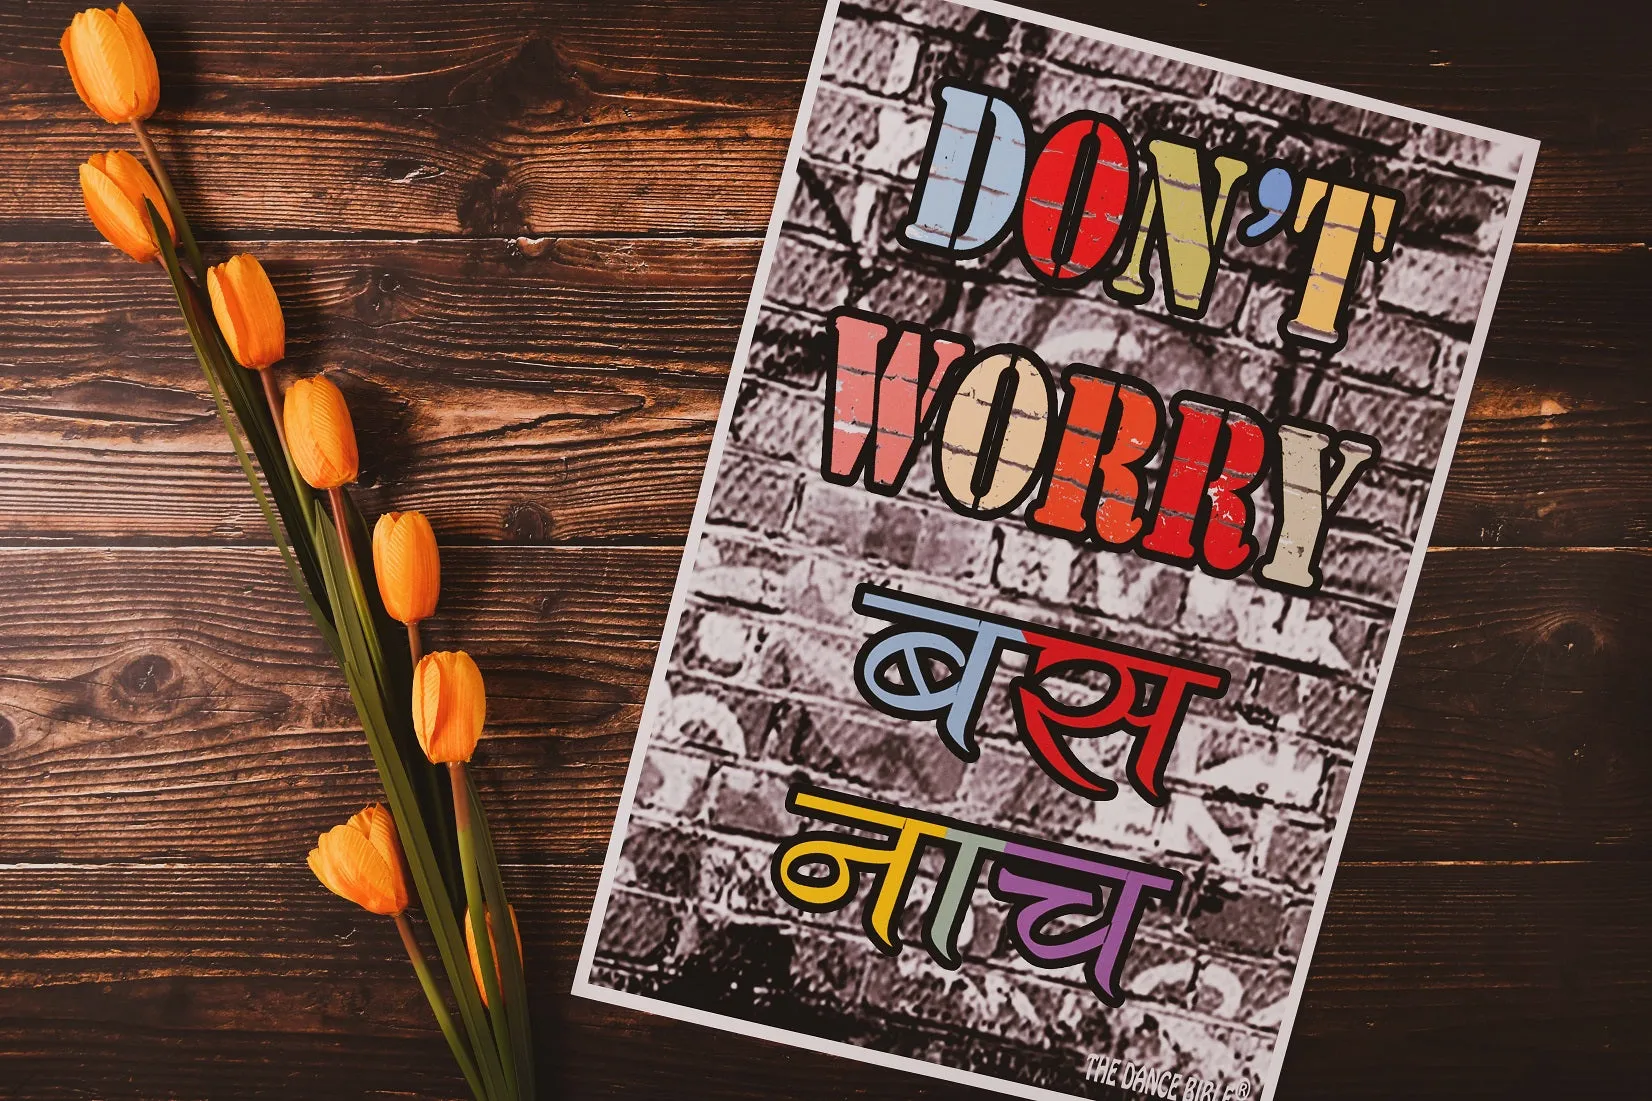 DON'T
WORRY
बस
नाच
THE DANCE BIBLE®